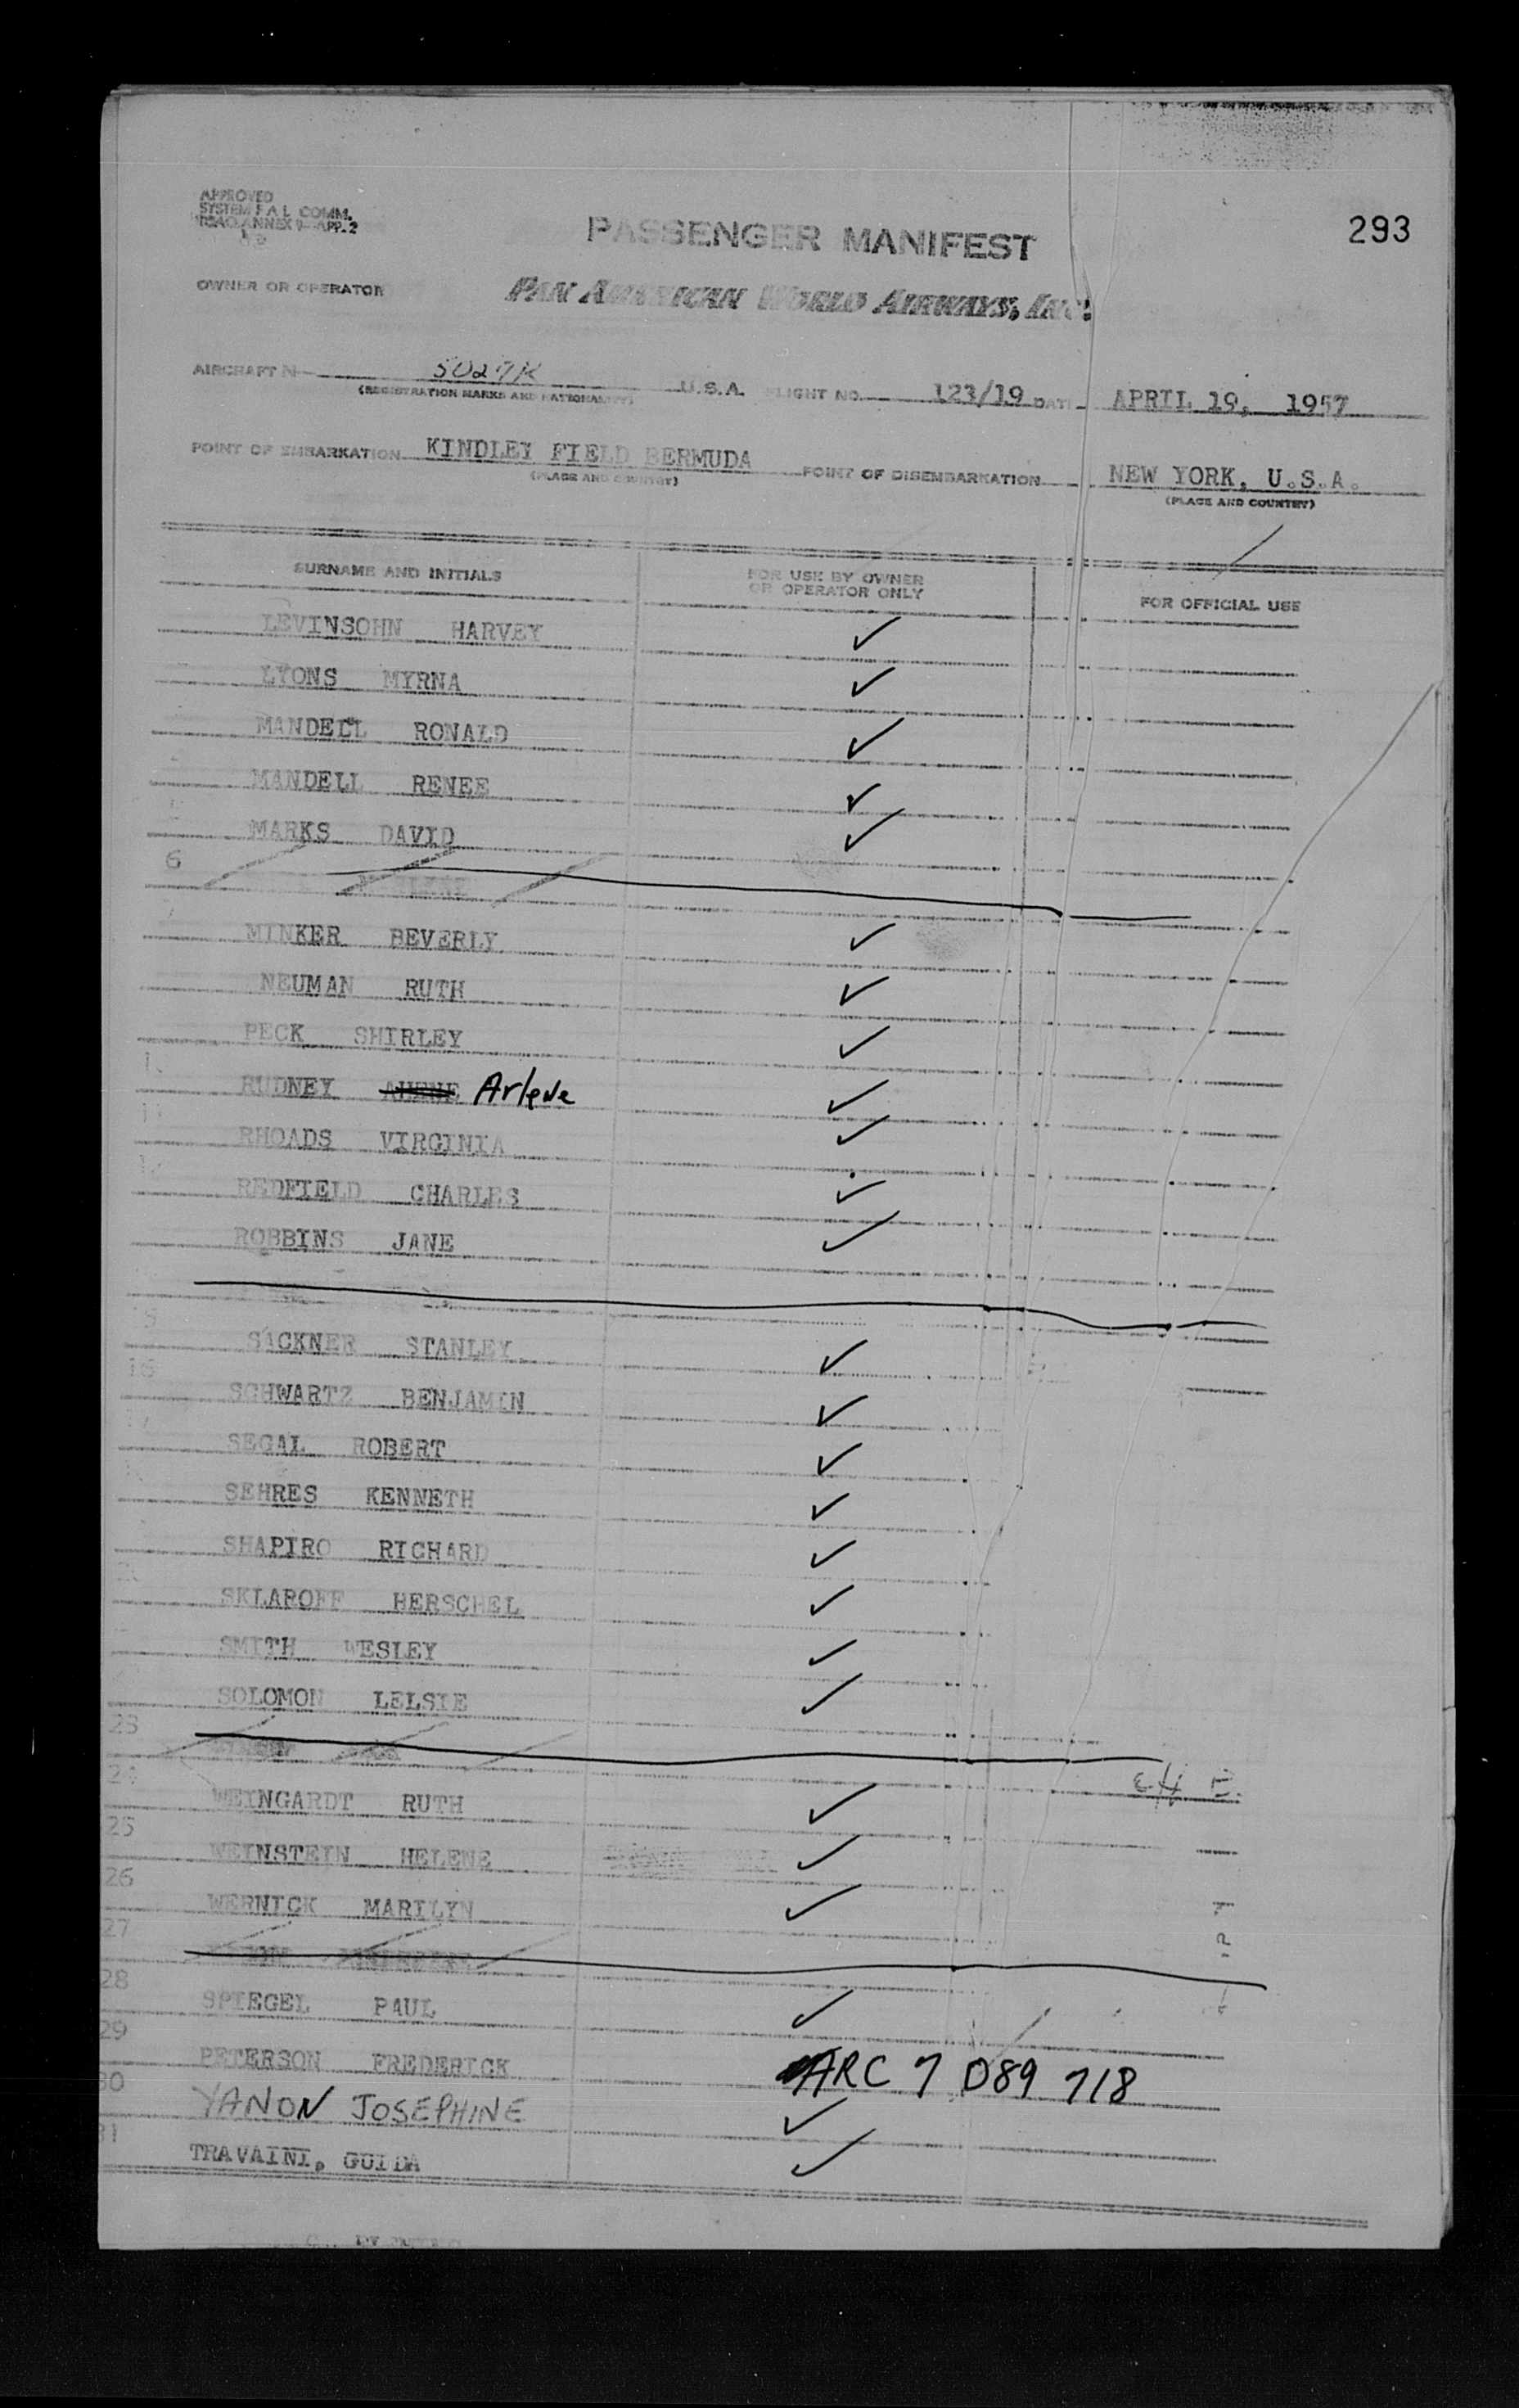 APPROVED
SYSTEM F A L COMM.
ICAO ANNEX 9 APP. 2
PASSENGER MANIFEST
293
OWNER OR OPERATOR
PAN AMERICAN WORLD AIRWAYS, INC.
AIRCRAFT N 5027K U.S.A. FLIGHT NO. 123/19 DATE APRIL 19, 1957
(REGISTRATION MARKS AND NATIONALITY)
POINT OF EMBARKATION KINDLEY FIELD BERMUDA POINT OF DISEMBARKATION NEW YORK, U.S.A.
(PLACE AND COUNTRY) (PLACE AND COUNTRY)
SURNAME AND INITIALS FOR USE BY OWNER OR OPERATOR ONLY FOR OFFICIAL USE
LEVINSOHN HARVEY ✓
LYONS MYRNA ✓
MANDELL RONALD ✓
MANDELL RENEE ✓
MARKS DAVID ✓
6
MINKER BEVERLY ✓
NEUMAN RUTH ✓
PECK SHIRLEY ✓
RUDNEY Arlene ✓
RHOADS VIRGINIA ✓
REDFIELD CHARLES ✓
ROBBINS JANE ✓
SACKNER STANLEY ✓
16 SCHWARTZ BENJAMIN ✓
SEGAL ROBERT ✓
SEHRES KENNETH ✓
SHAPIRO RICHARD ✓
SKLAROFF HERSCHEL ✓
SMITH WESLEY ✓
SOLOMON LELSIE ✓
23
24 WEINGARDT RUTH ✓
25 WEINSTEIN HELENE ✓
26 WERNICK MARILYN ✓
27
28 SPIEGEL PAUL ✓
29 PETERSON FREDERICK ARC 7 089 718
30 YANON JOSEPHINE ✓
31 TRAVAINI, GUIDA ✓